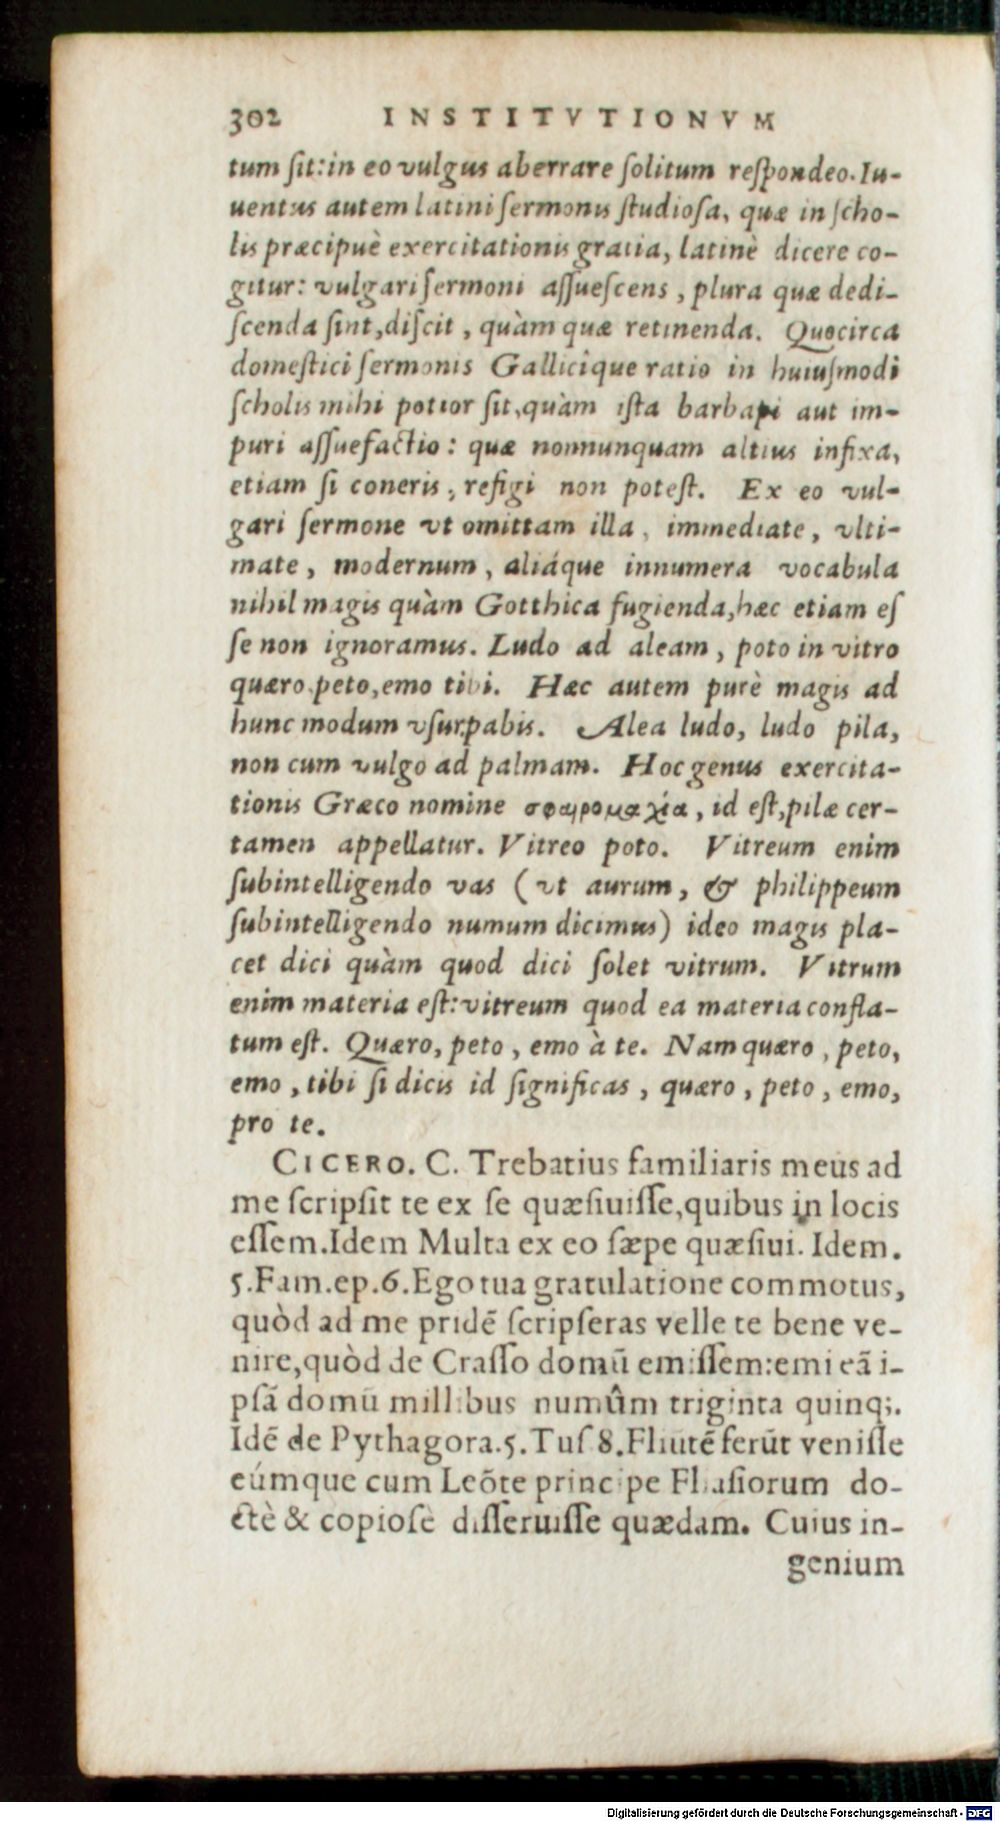 302 INSTITVTIONVM
tum ſit: in eo vulgus aberrare ſolitum reſpondeo. Iu-
uentus autem latini ſermonis ſtudioſa, quæ in ſcho-
lis præcipuè exercitationis gratia, latinè dicere co-
gitur: vulgari ſermoni aſſueſcens, plura quæ dedi-
ſcenda ſint, diſcit, quàm quæ retinenda. Quocirca
domeſtici ſermonis Gallicíque ratio in huiuſmodi
ſcholis mihi potior ſit, quàm iſta barbari aut im-
puri aſſuefactio: quæ nonnunquam altius infixa,
etiam ſi coneris, refigi non poteſt. Ex eo vul-
gari ſermone vt omittam illa, immediate, vlti-
mate, modernum, aliáque innumera vocabula
nihil magis quàm Gotthica fugienda, hæc etiam eſ
ſe non ignoramus. Ludo ad aleam, poto in vitro
quæro, peto, emo tibi. Hæc autem purè magis ad
hunc modum vſurpabis. Alea ludo, ludo pila,
non cum vulgo ad palmam. Hoc genus exercita-
tionis Græco nomine σφαιρομαχία, id eſt, pilæ cer-
tamen appellatur. Vitreo poto. Vitreum enim
ſubintelligendo vas (vt aurum, & philippeum
ſubintelligendo numum dicimus) ideo magis pla-
cet dici quàm quod dici ſolet vitrum. Vitrum
enim materia eſt: vitreum quod ea materia confla-
tum eſt. Quæro, peto, emo à te. Nam quæro, peto,
emo, tibi ſi dicis id ſignificas, quæro, peto, emo,
pro te.
CICERO. C. Trebatius familiaris meus ad
me ſcripſit te ex ſe quæſiuiſſe, quibus in locis
eſſem. Idem Multa ex eo ſæpe quæſiui. Idem.
5. Fam. ep. 6. Ego tua gratulatione commotus,
quòd ad me pridē ſcripſeras velle te bene ve-
nire, quòd de Craſſo domū emiſſem: emi eā i-
pſā domū millibus numûm triginta quinq;.
Idē de Pythagora. 5. Tuſ 8. Fliūtē ferūt veniſſe
eúmque cum Leōte principe Fliaſiorum do-
ctè & copioſè diſſeruiſſe quædam. Cuius in-
genium
Digitalisierung gefördert durch die Deutsche Forschungsgemeinschaft - DFG